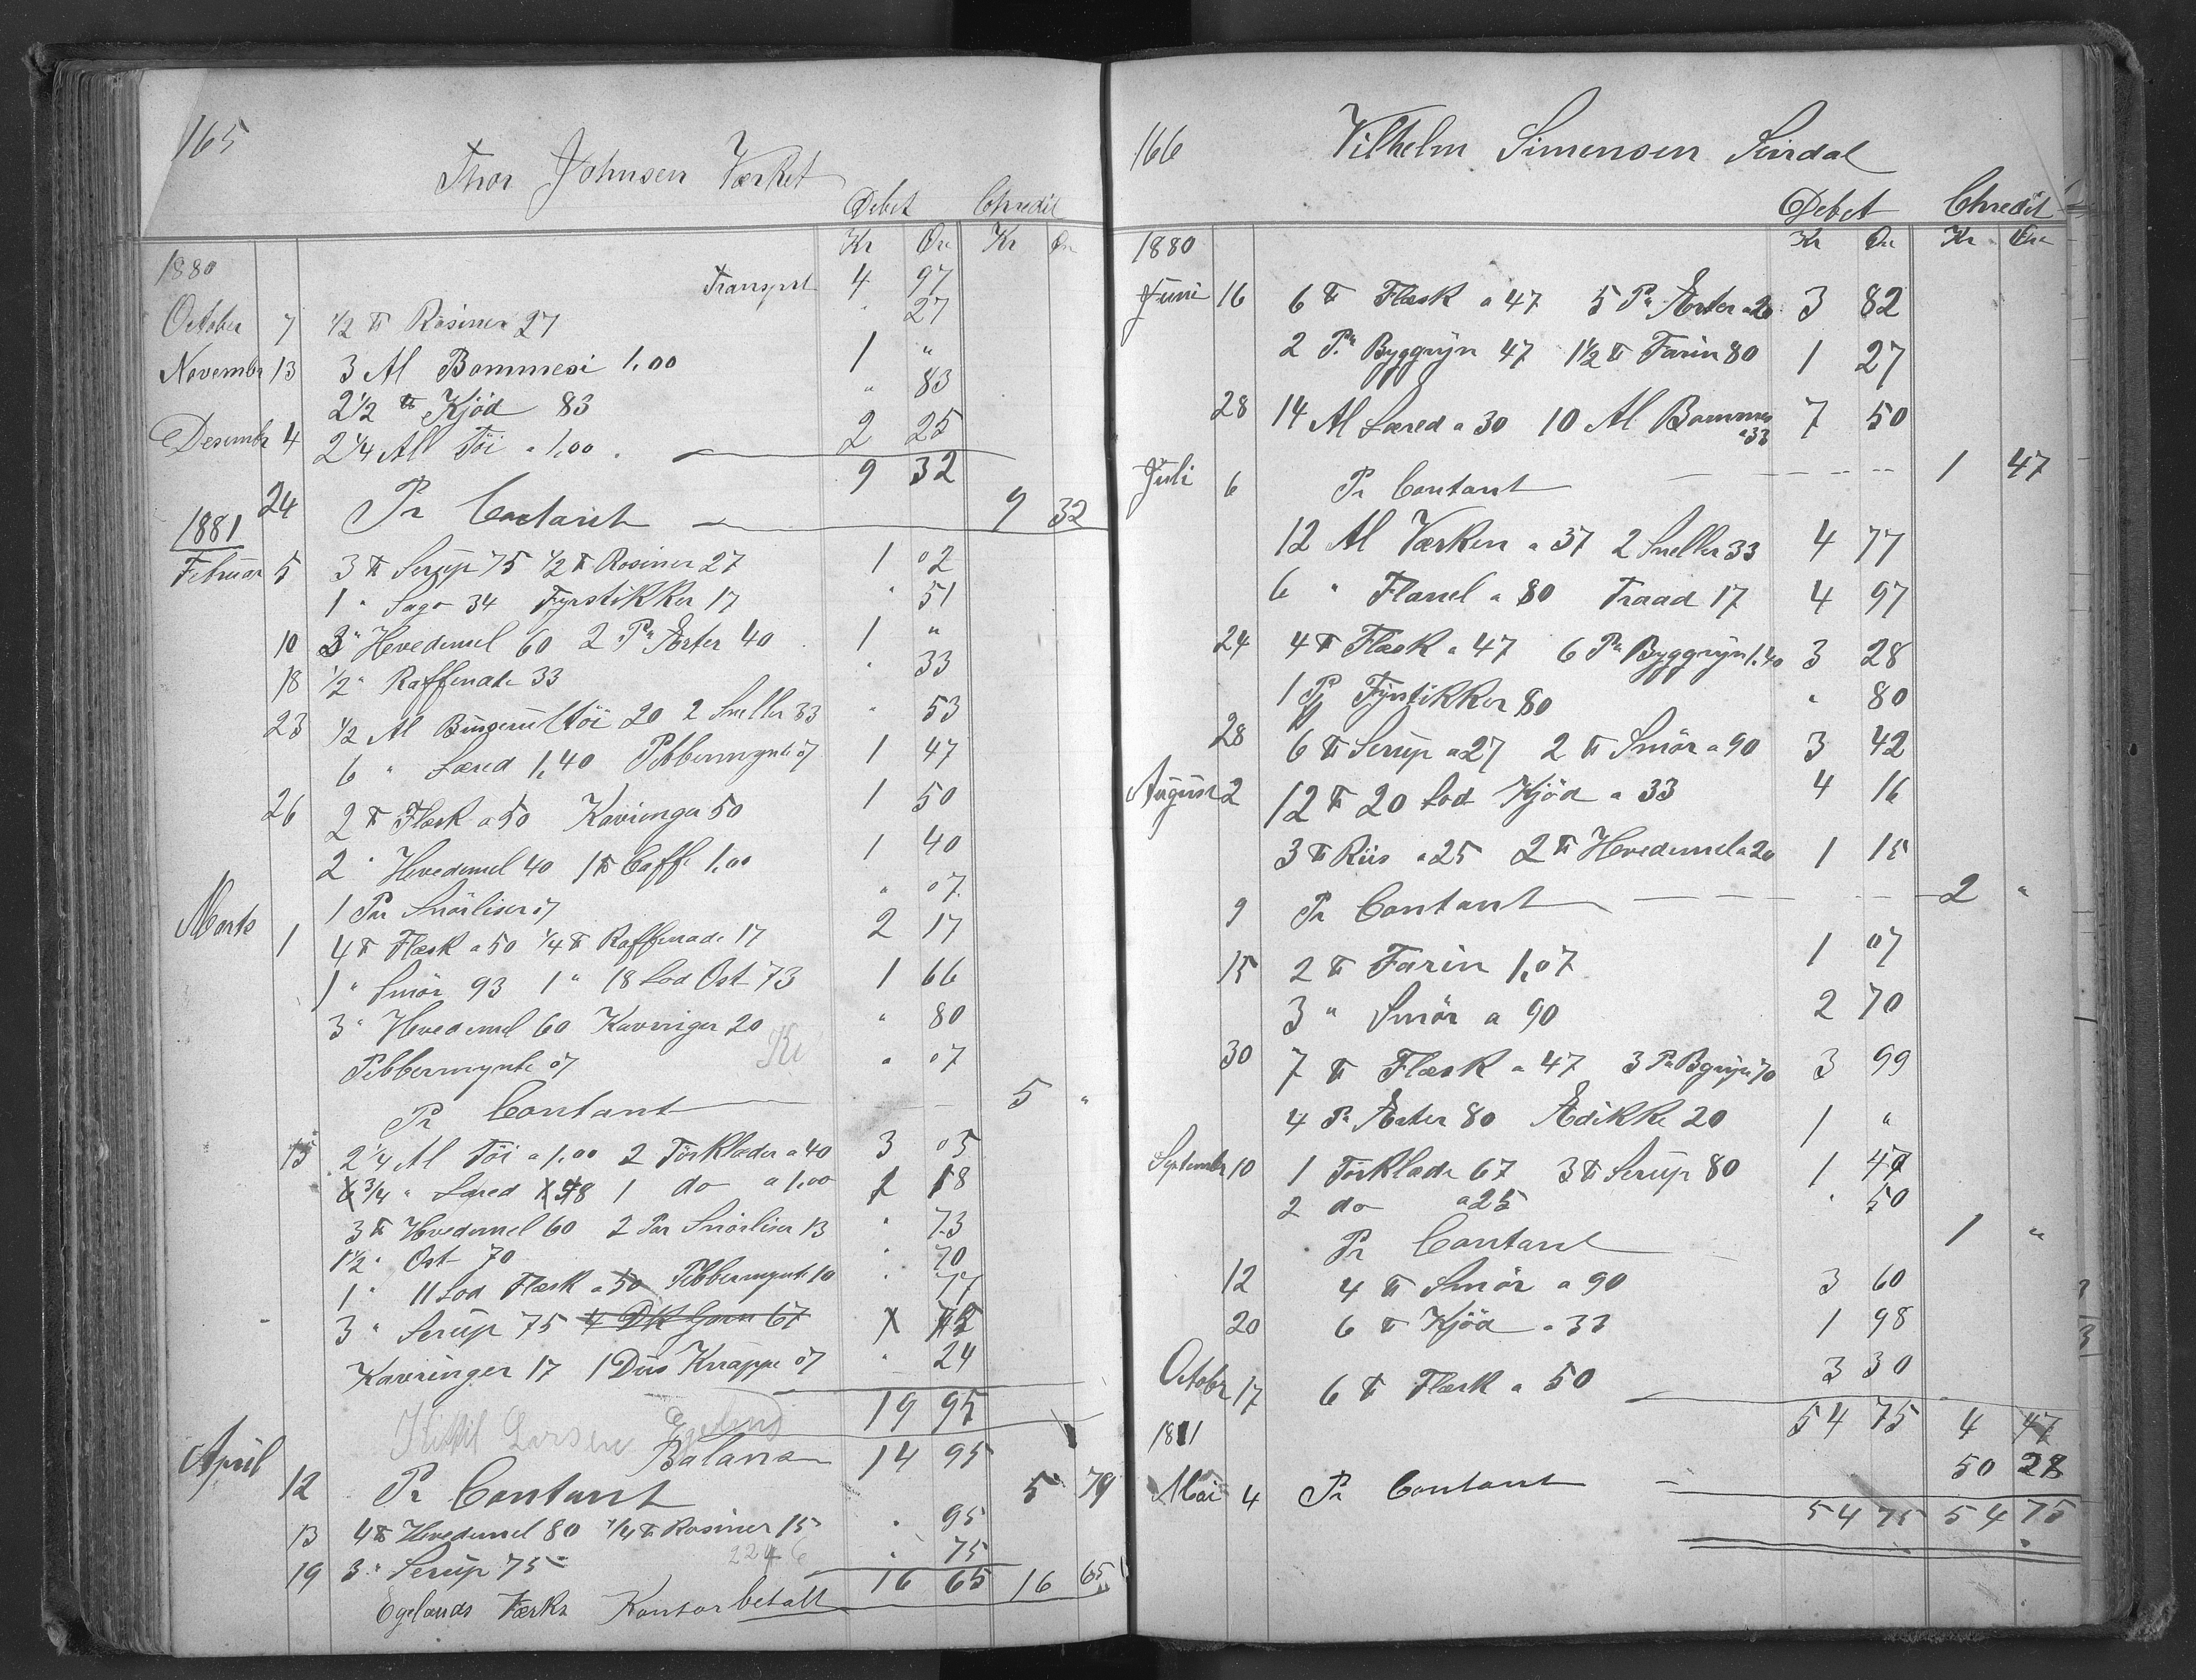 165
Thor Johnsen Værket
Debet Chredit
Kr Øre Kr Øre
1880 Transport 4 97
October 7 ½ ℔ Rosiner 27 " 27
Novembr 13 3 Al Bommesi 1,00 1 "
2½ ℔ Kjöd 83 " 83
Desembr 4 2¼ Al Töi a 1,00 2 25
9 32
24 Pr Contant 9 32
1881
Februar 5 3 ℔ Serup 75 ½ ℔ Rosiner 27 1 02
1 " Sago 34 Fyrstikker 17 " 51
10 3 " Hvedemel 60 2 Pn Ærter 40 1 "
18 ½ " Raffenade 33 " 33
23 ½ Al 20 2 Sneller 33 " 53
6 " Læred 1,40 Pebbermynte 07 1 47
26 2 ℔ Flæsk a 50 Kavringer 50 1 50
2 " Hvedemel 40 1 ℔ Caffe 1,00 1 40
1 Par Snörliser 07 " 07
Marts 1 4 ℔ Flæsk a 50 ¼ ℔ Raffenade 17 2 17
1 " Smör 93 1 " 18 Lod Ost 73 1 66
3 " Hvedemel 60 Kavringer 20 " 80
Pebbermynte 07 " 07
Pr Contant 5 "
15 2¼ Al Töi a 1,00 2 Törklæder a 40 3 05
¾ " Læred 18 1 do a 1,00 1 18
3 ℔ Hvedemel 60 2 Par Snörliser 13 " 73
1½ " Ost 70 " 70
1 " 11 Lod Flæsk a 50 Pebbermynte 10 " 77
3 " Serup 75 4 DK Garn 67 " 75
Kavringer 17 1 Dus Knappe 07 " 24
19 95
Kittil Larsen Egeland
Balanse 14 95
April 12 Pr Contant 5 79
13 4 ℔ Hvedemel 80 ¼ ℔ Rosiner 15 " 95
19 3 " Serup 75 " 75
2246
16 65 16 65
Egelands Værks Kontor betalt
166
Vilhelm Simensen Surdal
Debet Chredit
Kr Øre Kr Øre
1880
Juni 16 6 ℔ Flæsk a 47 5 Pn Ærter a 20 3 82
2 Pn Byggryn 47 1½ ℔ Farin 80 1 27
28 14 Al Læred a 30 10 Al Bommesi a 33 7 50
Juli 6 Pr Contant 1 47
12 Al Værken a 37 2 Sneller 33 4 77
6 " Flanel a 80 Traad 17 4 97
24 4 ℔ Flæsk a 47 6 Pn Byggryn 1,40 3 28
1 Pj Fyrstikker 80 " 80
28 6 ℔ Serup a 27 2 ℔ Smör a 90 3 42
August 2 12 ℔ 20 Lod Kjöd a 33 4 16
3 ℔ Riis a 25 2 ℔ Hvedemel a 20 1 15
9 Pr Contant 2 "
15 2 ℔ Farin 1,07 1 07
3 " Smör a 90 2 70
30 7 ℔ Flæsk a 47 3 Pn Bgryn 70 3 99
4 Pn Ærter 80 Ædikke 20 1 "
Septembr 10 1 Törklæde 67 3 ℔ Serup 80 1 47
2 do a 25 " 50
Pr Contant 1 "
12 4 ℔ Smör a 90 3 60
20 6 ℔ Kjöd a 33 1 98
Octobr 17 6 ℔ Flæsk a 50 3 30
54 75 4 47
1881 50 28
Mai 4 Pr Contant
54 75 54 75